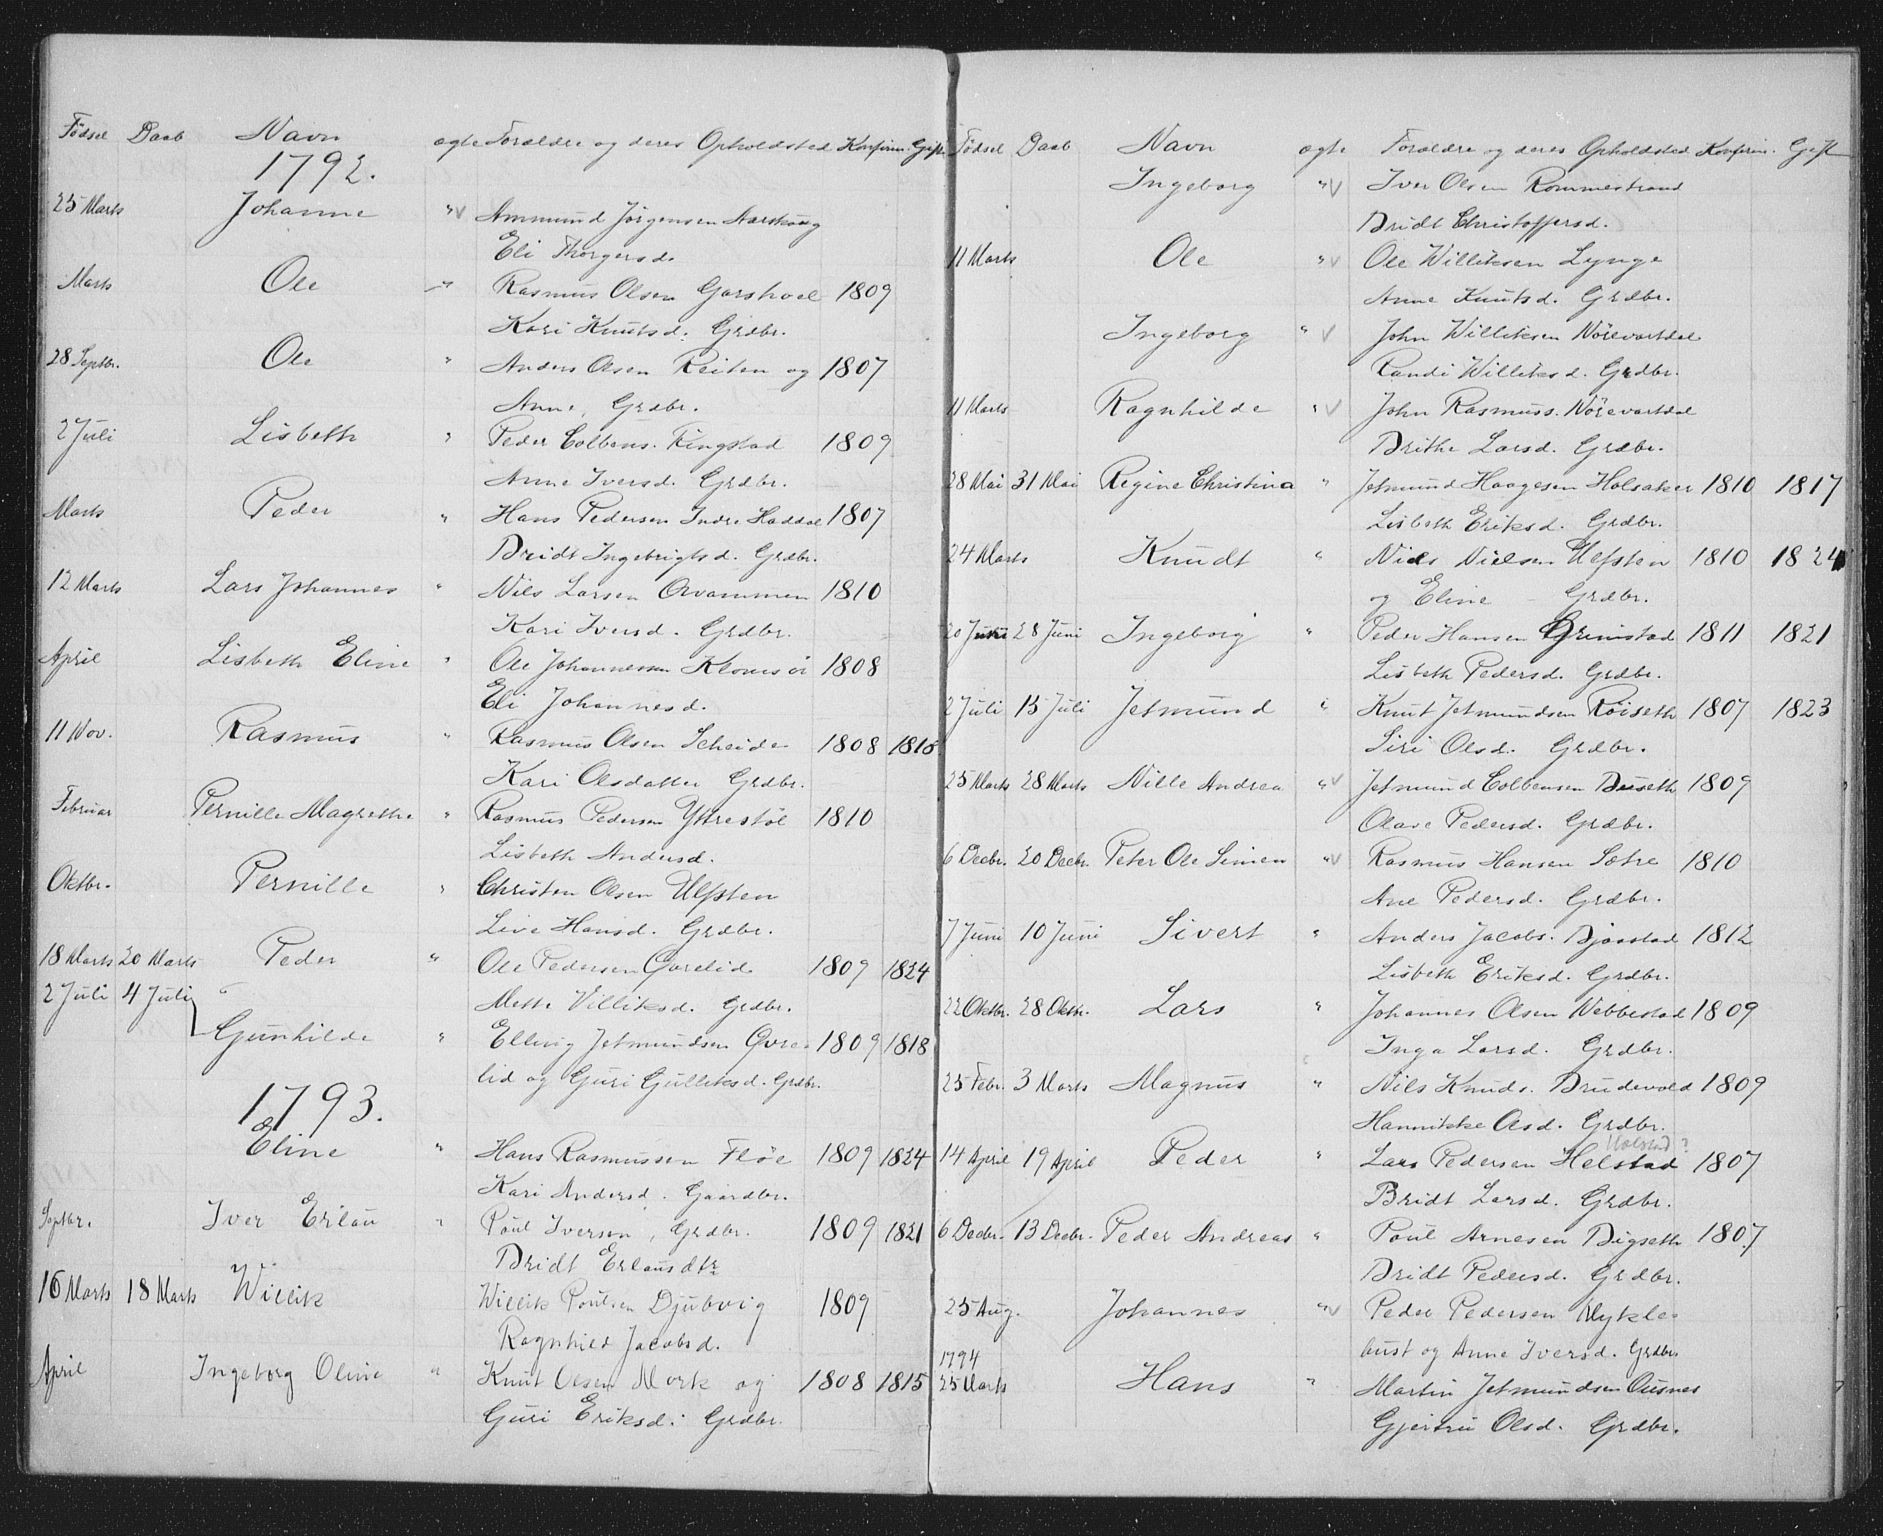 Fødsel Daab Navn ægte Forældre og deres Opholdsted Konfirm. Gift.
1792.
25 Marts Johanne " v Ammund Jørgensen Aarskoug
Eli Thorgersd.
Marts Ole " Rasmus Olsen Garshoel 1809
Kari Knutsd. Grdbr.
28 Septbr. Ole " Anders Olsen Reiten og 1807
Anne, Grdbr.
2 Juli Lisbeth " Peder Colbens. Ringstad 1809
Anne Iversd. Grdbr.
Marts Peder " Hans Pedersen Indre Haddal 1807
Bridt Ingebrigtsd. Grdbr.
12 Marts Lars Johannes " Nils Larsen Qvammen 1810
Kari Iversd. Grdbr.
April Lisbeth Eline " Ole Johannessen 1808
Eli Johannesd.
11 Nov. Rasmus " Rasmus Olsen Scheide 1808 1815
Kari Olsdatter Grdbr.
Februar Pernille Magrethe " Rasmus Pedersen Yttrestøl 1810
Lisbeth Andersd.
Oktbr. Pernille " Christen Olsen Ulfsten
Live Hansd. Grdbr.
18 Marts 20 Marts Peder " Ole Pedersen Qvrelid 1809 1824
Mette Villiksd. Grdbr.
2 Juli 4 Juli Gunhilde " Elling Jetmundsen Qvre- 1809 1818
lid og Guri Gulliksd. Grdbr.
1793.
Eline " Hans Rasmussen Fløe 1809 1824
Kari Andersd. Gaardbr.
Septbr. Iver Erlan " Poul Iversen, Grdbr. 1809 1821
Bridt Erlansdtr
16 Marts 18 Marts Willik Willik Poulsen Djubvig 1809
Ragnhild Jacobsd.
April Ingeborg Oline " Knut Olsen Mork og 1808 1815
Guri Eriksd. Grdbr.
Fødsel Daab Navn ægte Forældre og deres Opholdsted Konfirm. Gift
Ingeborg " v Iver Olsen Rommestrand
Bridt Christoffersd.
11 Marts Ole " v Ole Williksen Lynge
Anne Knutsd. Grdbr.
Ingeborg " v John Williksen Nörevartdal
Randi Williksd. Grdbr.
11 Marts Ragnhilde " v John Rasmuss. Nörevartdal
Brithe Larsd. Grdbr.
28 Mai 31 Mai Regine Christina " Jetmund Haagesen Holsaker 1810 1817
Lisbeth Eriksd. Grdbr.
24 Marts Knudt " Niels Nielsen Ulfsten 1810 1824
og Eline - Grdbr.
20 Juni 28 Juni Ingeborg " Peder Hansen Grimstad 1811 1821
Lisbeth Pedersd. Grdbr.
2 Juli 15 Juli Jetmund " Knut Jetmundsen Röiseth 1807 1823
Siri Olsd. Grdbr.
25 Marts 28 Marts Nille Andrea " v Jetmund Colbensen Buseth 1809
Olave Pedersd. Grdbr.
6 Decbr. 20 Decbr. Peter Ole Simen " v Rasmus Hansen Sætre 1810
Ane Pedersd. Grdbr.
7 Juni 10 Juni Sivert " Anders Jacobs. Bjaastad 1812
Lisbeth Eriksd. Grdbr.
22 Oktbr. 28 Oktbr. Lars " Johannes Olsen Nebbestad 1809
Inga Larsd. Grdbr.
25 Febr. 3 Marts Magnus " Nils Knuds. Brudevold 1809
Hannikke Olsd. Grdbr.
Holstad?
14 April 19 April Peder " Lars Pedersen Helstad 1807
Bridt Larsd. Grdbr.
6 Decbr. 13 Decbr. Peder Andreas " Poul Arnesen Digseth 1807
Bridt Pedersd. Grdbr.
25 Aug. Johannes " v Peder Pedersen Mykle-
bust og Anne Iversd. Grdbr.
1794
25 Marts Hans " Martin Jetmundsen Ousnes
Gjertru Olsd. Grdbr.